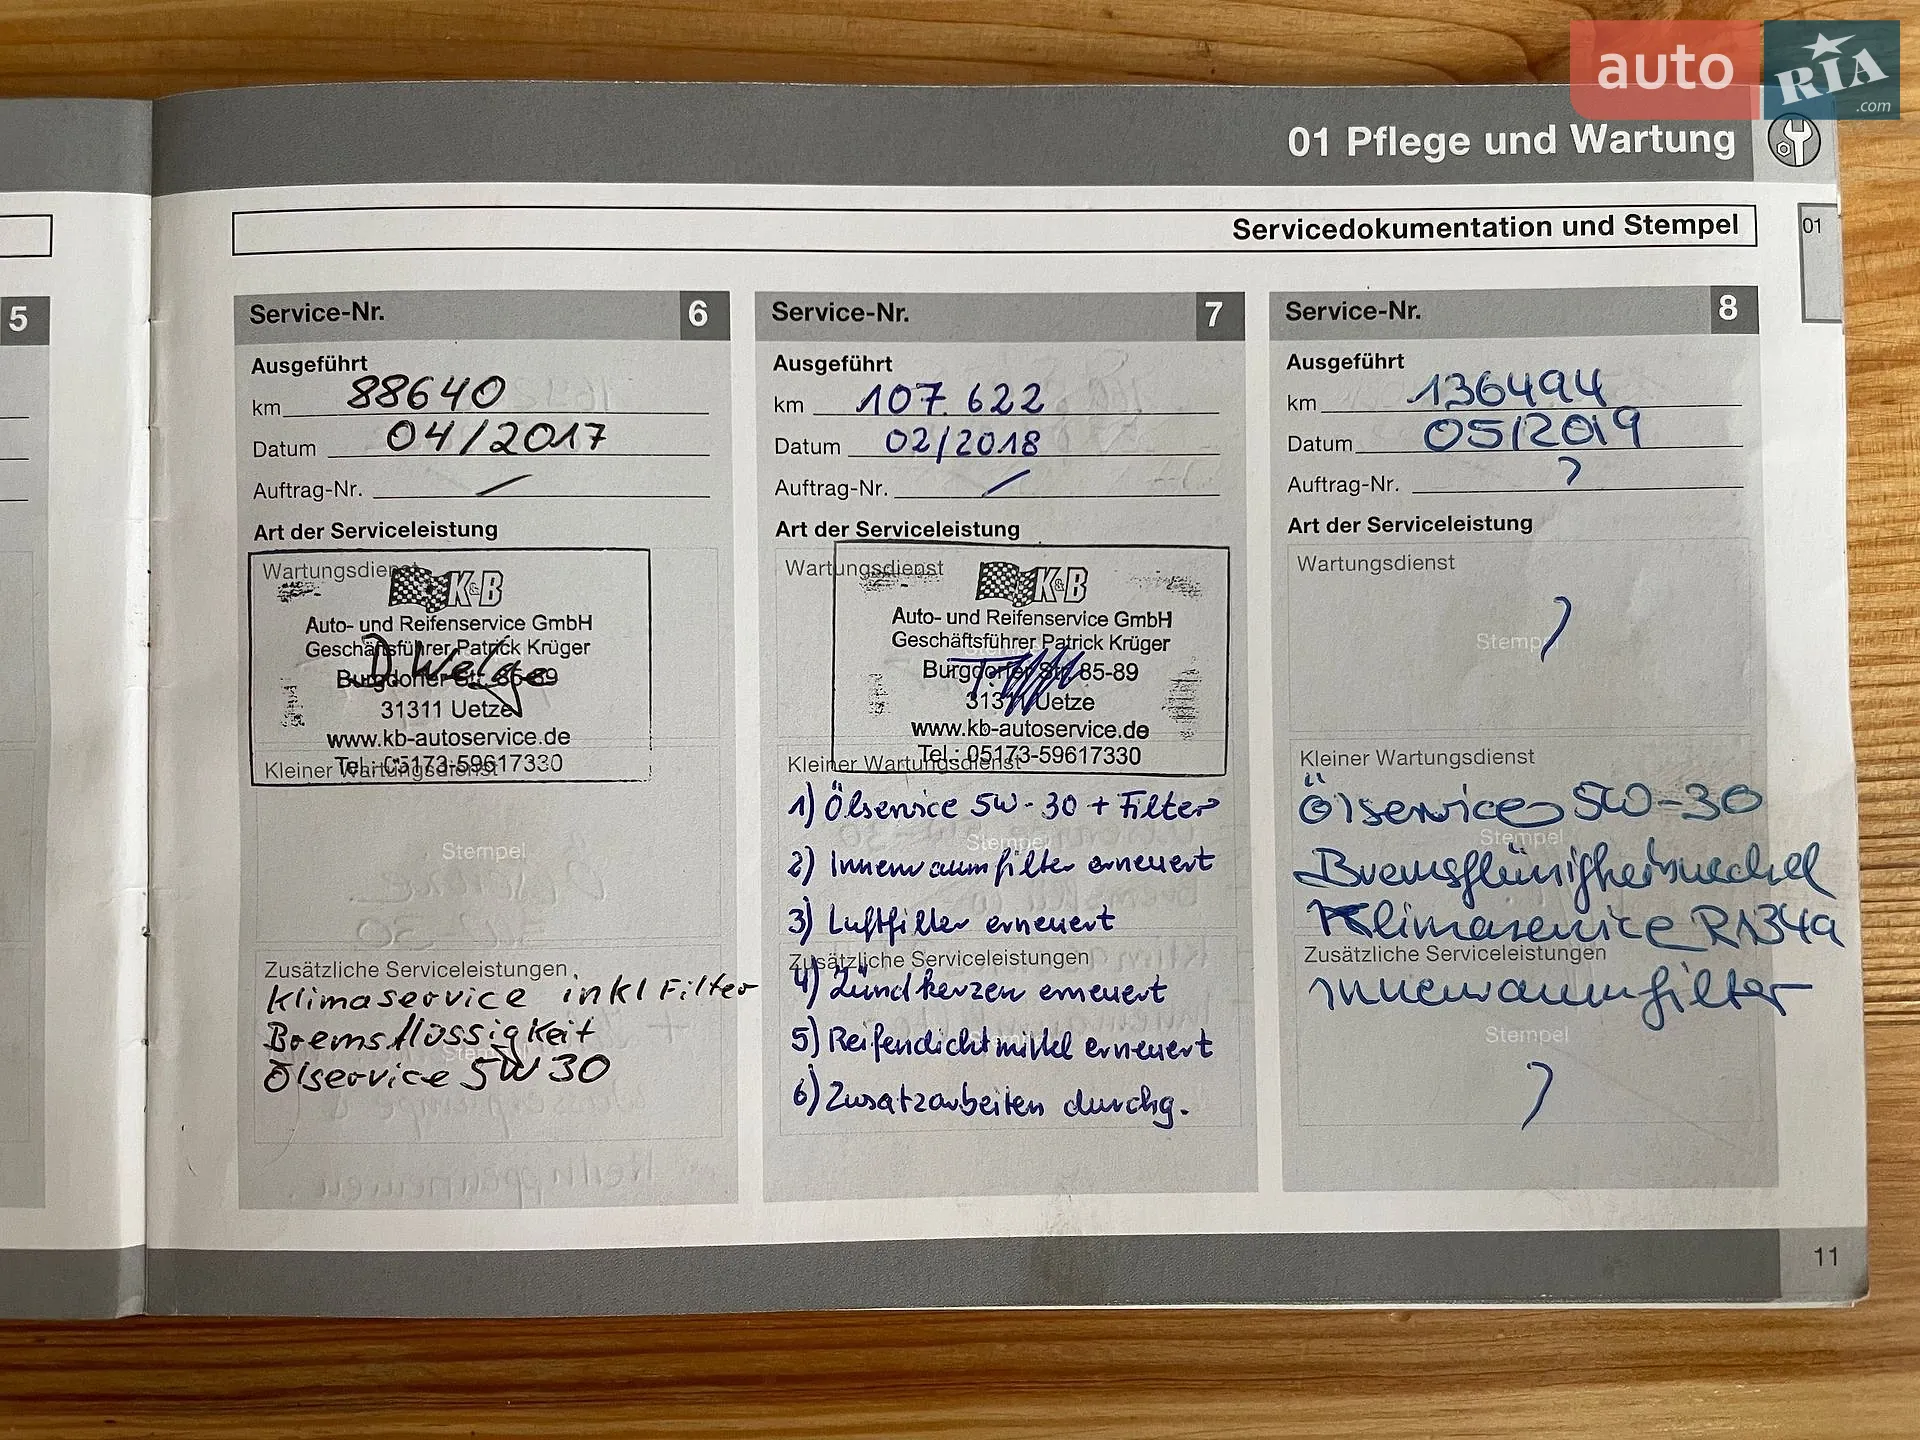 auto RIA .com
01 Pflege und Wartung
Servicedokumentation und Stempel
01
5
Service-Nr. 6
Ausgeführt
km 88640
Datum 04/2017
Auftrag-Nr. /
Art der Serviceleistung
Wartungsdienst
K&B
Auto- und Reifenservice GmbH
Geschäftsführer Patrick Krüger
D. Welge
Burgdorfer Str. 85-89
31311 Uetze
www.kb-autoservice.de
Tel.: 05173-59617330
Kleiner Wartungsdienst
Stempel
Zusätzliche Serviceleistungen
Klimaservice inkl Filter
Bremsflüssigkeit
Stempel
Ölservice 5W30
Service-Nr. 7
Ausgeführt
km 107.622
Datum 02/2018
Auftrag-Nr. /
Art der Serviceleistung
Wartungsdienst
K&B
Auto- und Reifenservice GmbH
Geschäftsführer Patrick Krüger
Burgdorfer Str. 85-89
31311 Uetze
www.kb-autoservice.de
Tel.: 05173-59617330
Kleiner Wartungsdienst
1) Ölservice 5W-30 + Filter
Stempel
2) Innenraumfilter erneuert
3) Luftfilter erneuert
Zusätzliche Serviceleistungen
4) Zündkerzen erneuert
5) Reifendichtmittel erneuert
6) Zusatzarbeiten durchg.
Service-Nr. 8
Ausgeführt
km 136494
Datum 05/2019
Auftrag-Nr.
Art der Serviceleistung
Wartungsdienst
Stempel
Kleiner Wartungsdienst
Ölservice 5W-30
Stempel
Klimaservice R134a
Zusätzliche Serviceleistungen
Innenraumfilter
Stempel
11